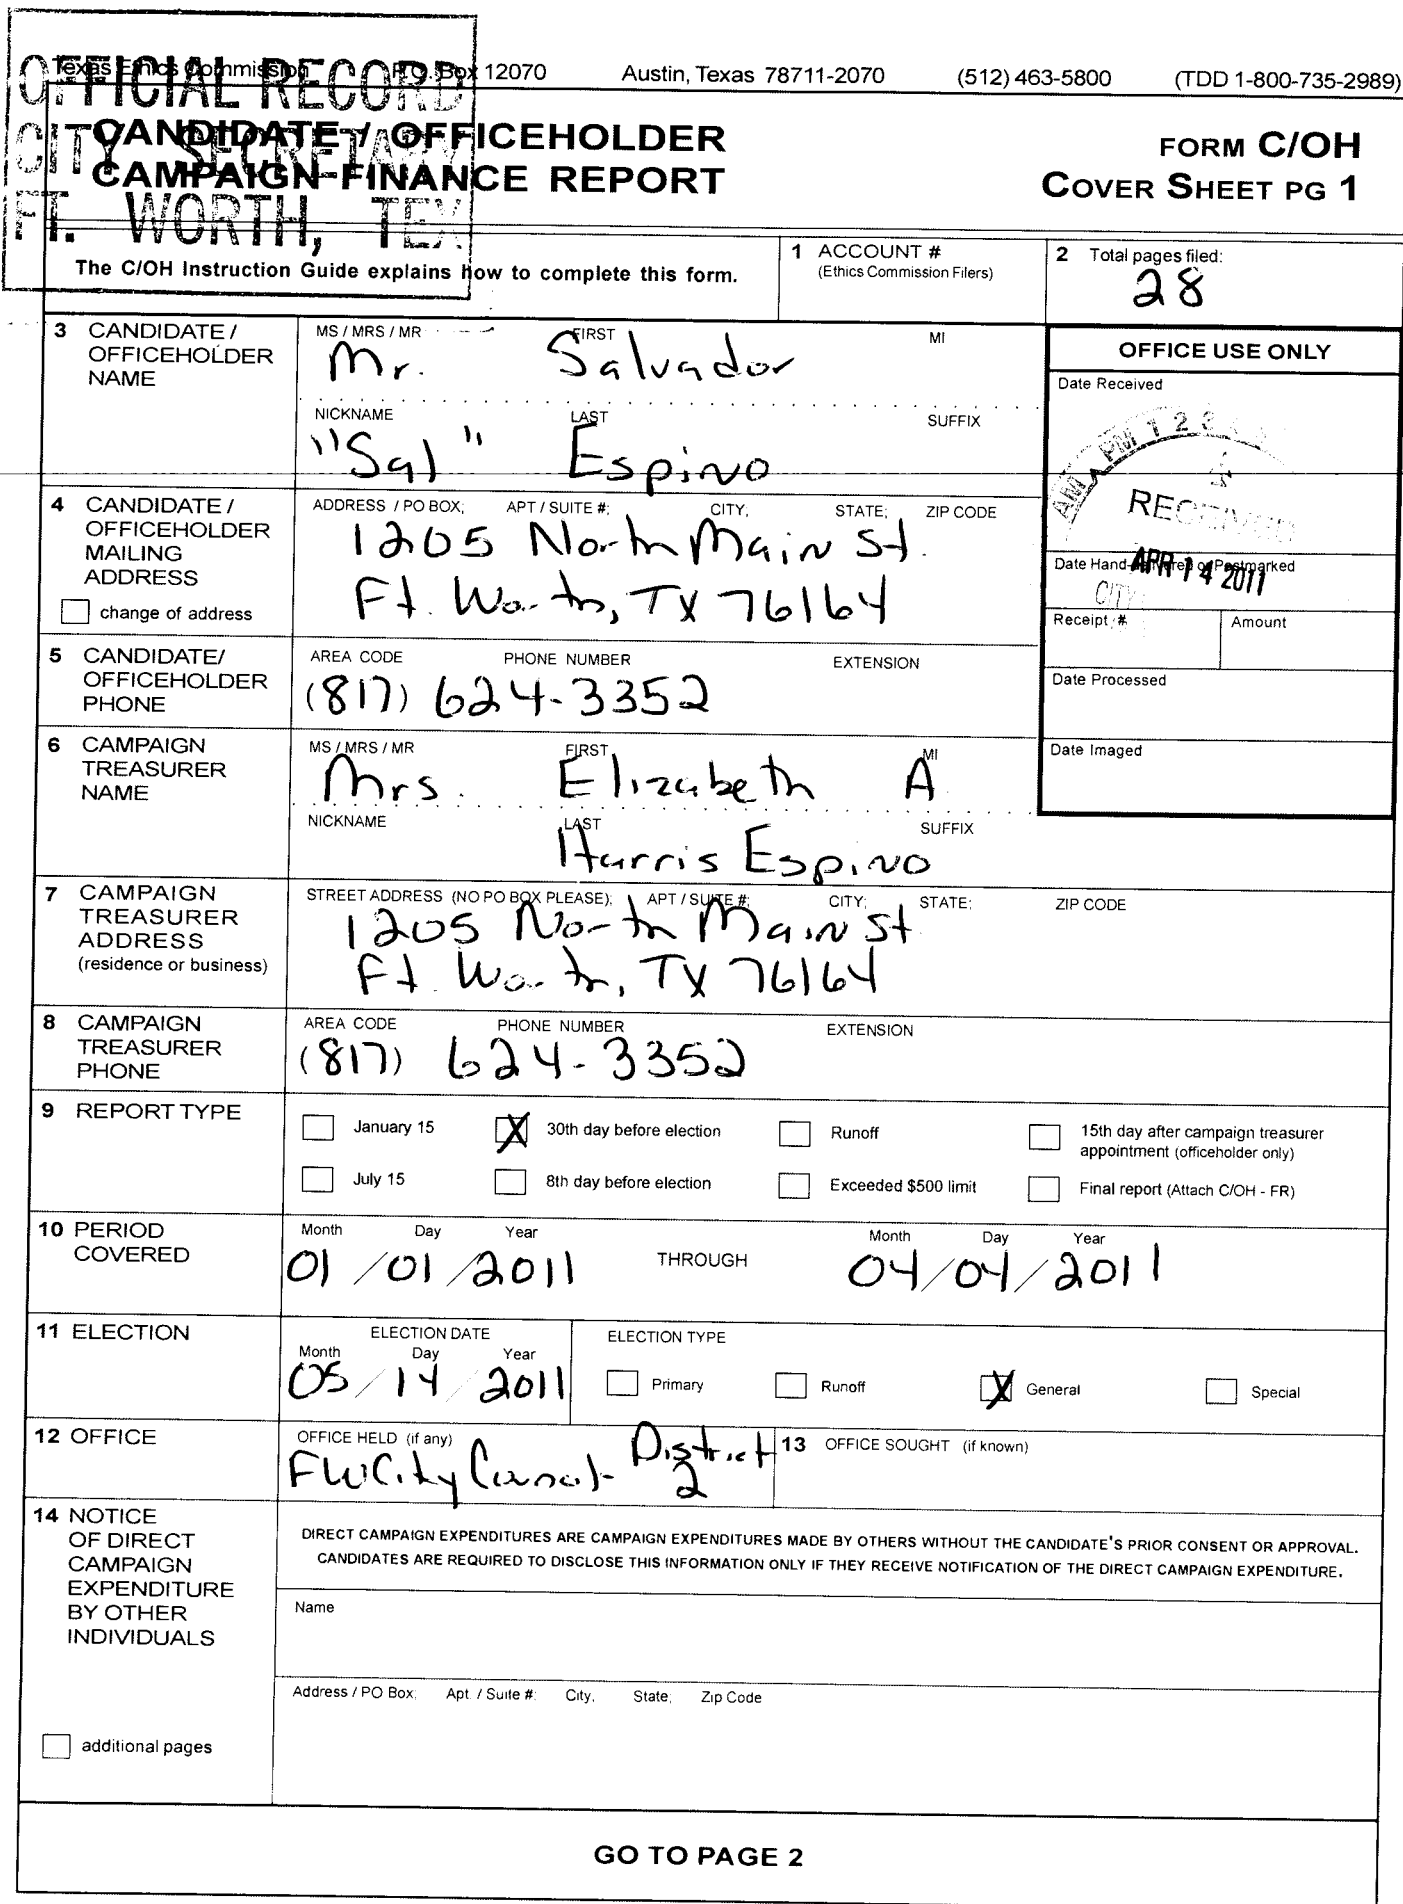 Texas Ethics Commission P.O. Box 12070 Austin, Texas 78711-2070 (512) 463-5800 (TDD 1-800-735-2989)
OFFICIAL RECORD
CITY SECRETARY
FT. WORTH, TEX
CANDIDATE / OFFICEHOLDER
CAMPAIGN FINANCE REPORT
FORM C/OH
COVER SHEET PG 1
The C/OH Instruction Guide explains how to complete this form.
1 ACCOUNT #
(Ethics Commission Filers)
2 Total pages filed:
28
3 CANDIDATE /
OFFICEHOLDER
NAME
MS / MRS / MR FIRST MI
Mr. Salvador
NICKNAME LAST SUFFIX
"Sal" Espino
OFFICE USE ONLY
Date Received
AM PM 1 2 3
RECEIVED
APR 14 2011
CITY
Date Hand-delivered or Postmarked
Receipt # Amount
Date Processed
Date Imaged
4 CANDIDATE /
OFFICEHOLDER
MAILING
ADDRESS
change of address
ADDRESS / PO BOX; APT / SUITE #; CITY; STATE; ZIP CODE
1205 North Main St.
Ft. Worth, TX 76164
5 CANDIDATE/
OFFICEHOLDER
PHONE
AREA CODE PHONE NUMBER EXTENSION
(817) 624-3352
6 CAMPAIGN
TREASURER
NAME
MS / MRS / MR FIRST MI
Mrs. Elizabeth A
NICKNAME LAST SUFFIX
Harris Espino
7 CAMPAIGN
TREASURER
ADDRESS
(residence or business)
STREET ADDRESS (NO PO BOX PLEASE); APT / SUITE #; CITY; STATE; ZIP CODE
1205 North Main St
Ft. Worth, TX 76164
8 CAMPAIGN
TREASURER
PHONE
AREA CODE PHONE NUMBER EXTENSION
(817) 624-3352
9 REPORT TYPE
January 15 X 30th day before election Runoff 15th day after campaign treasurer
appointment (officeholder only)
July 15 8th day before election Exceeded $500 limit Final report (Attach C/OH - FR)
10 PERIOD
COVERED
Month Day Year Month Day Year
01/01/2011 THROUGH 04/04/2011
11 ELECTION
ELECTION DATE
Month Day Year
05/14/2011
ELECTION TYPE
Primary Runoff X General Special
12 OFFICE
OFFICE HELD (if any)
FW City Council - District
2
13 OFFICE SOUGHT (if known)
14 NOTICE
OF DIRECT
CAMPAIGN
EXPENDITURE
BY OTHER
INDIVIDUALS
additional pages
DIRECT CAMPAIGN EXPENDITURES ARE CAMPAIGN EXPENDITURES MADE BY OTHERS WITHOUT THE CANDIDATE'S PRIOR CONSENT OR APPROVAL.
CANDIDATES ARE REQUIRED TO DISCLOSE THIS INFORMATION ONLY IF THEY RECEIVE NOTIFICATION OF THE DIRECT CAMPAIGN EXPENDITURE.
Name
Address / PO Box; Apt. / Suite #; City; State; Zip Code
GO TO PAGE 2